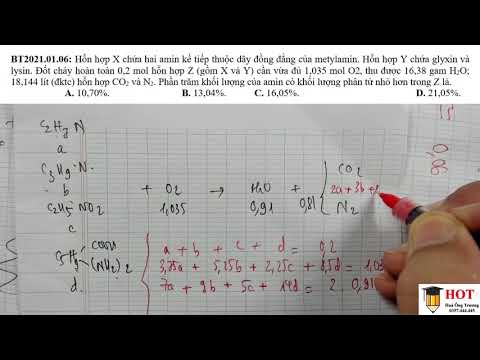 BT2021.01.06: Hỗn hợp X chứa hai amin kế tiếp thuộc dãy đồng đẳng của metylamin. Hỗn hợp Y chứa glyxin và
lysin. Đốt cháy hoàn toàn 0,2 mol hỗn hợp Z (gồm X và Y) cần vừa đủ 1,035 mol O2, thu được 16,38 gam H₂O;
18,144 lít (đktc) hỗn hợp CO₂ và N₂. Phần trăm khối lượng của amin có khối lượng phân tử nhỏ hơn trong Z là.
A. 10,70%. B. 13,04%. C. 16,05%. D. 21,05%.
C₂H₇N
a
C₃H₉N
b
C₂H₅NO₂
c
COOH
(NH₂)₂
d
+ O₂ → H₂O + CO₂
1,035 0,91 0,81 2a + 3b +
N₂
a + b + c + d = 0,2
3,75a + 5,25b + 2,25c + 8,5d = 1,03
7a + 9b + 5c + 14d = 2 0,91
HOT
Hoá Ông Trương